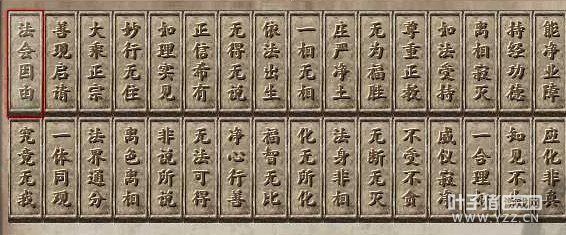 法会因由
善现启请
大乘正宗
妙行无住
如理实见
正信希有
无得无说
依法出生
一相无相
庄严净土
无为福胜
尊重正教
如法受持
离相寂灭
持经功德
能净业障
究竟无我
一体同观
法界通分
离色离相
非说所说
无法可得
净心行善
福智无比
化无所化
法身非相
无断无灭
不受不贪
威仪寂净
一合理
知见不
应化非真
叶子猪游戏网
www.YZZ.CN